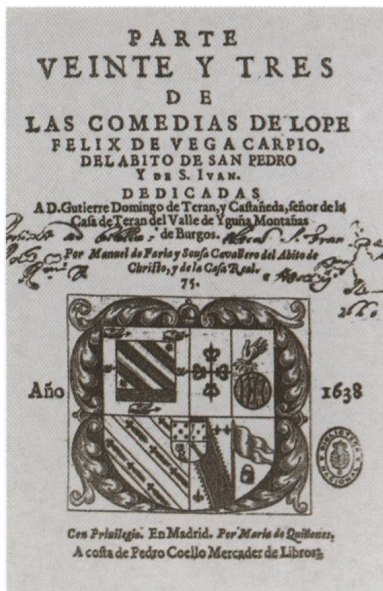 PARTE
VEINTE Y TRES
DE
LAS COMEDIAS DE LOPE
FELIX DE VEGA CARPIO,
DEL ABITO DE SAN PEDRO
Y DE S. IVAN.
DEDICADAS
A D. Gutierre Domingo de Teran, y Castañeda, señor de la
Casa de Teran del Valle de Yguña Montañas
de Burgos.
Por Manuel de Faria y Sousa Cavallero del Abito de
Christo, y de la Casa Real.
75.
Año 1638
Con Privilegio. En Madrid. Por Maria de Quiñones.
A costa de Pedro Coello Mercader de Libros.